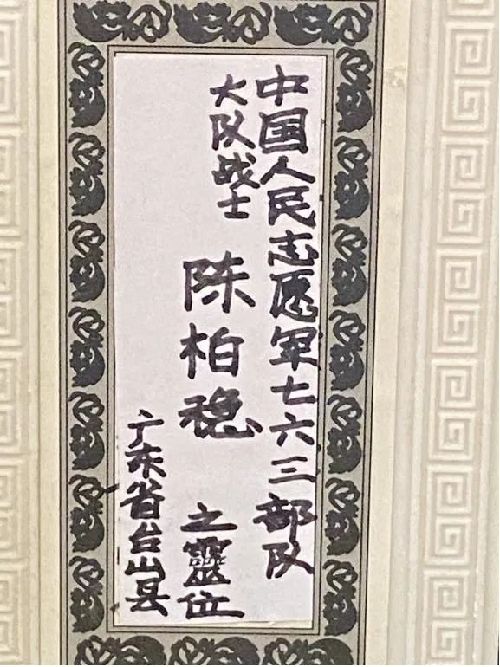 中国人民志愿军七六三部队
大队战士
陈柏稳
之靈位
广东省台山县